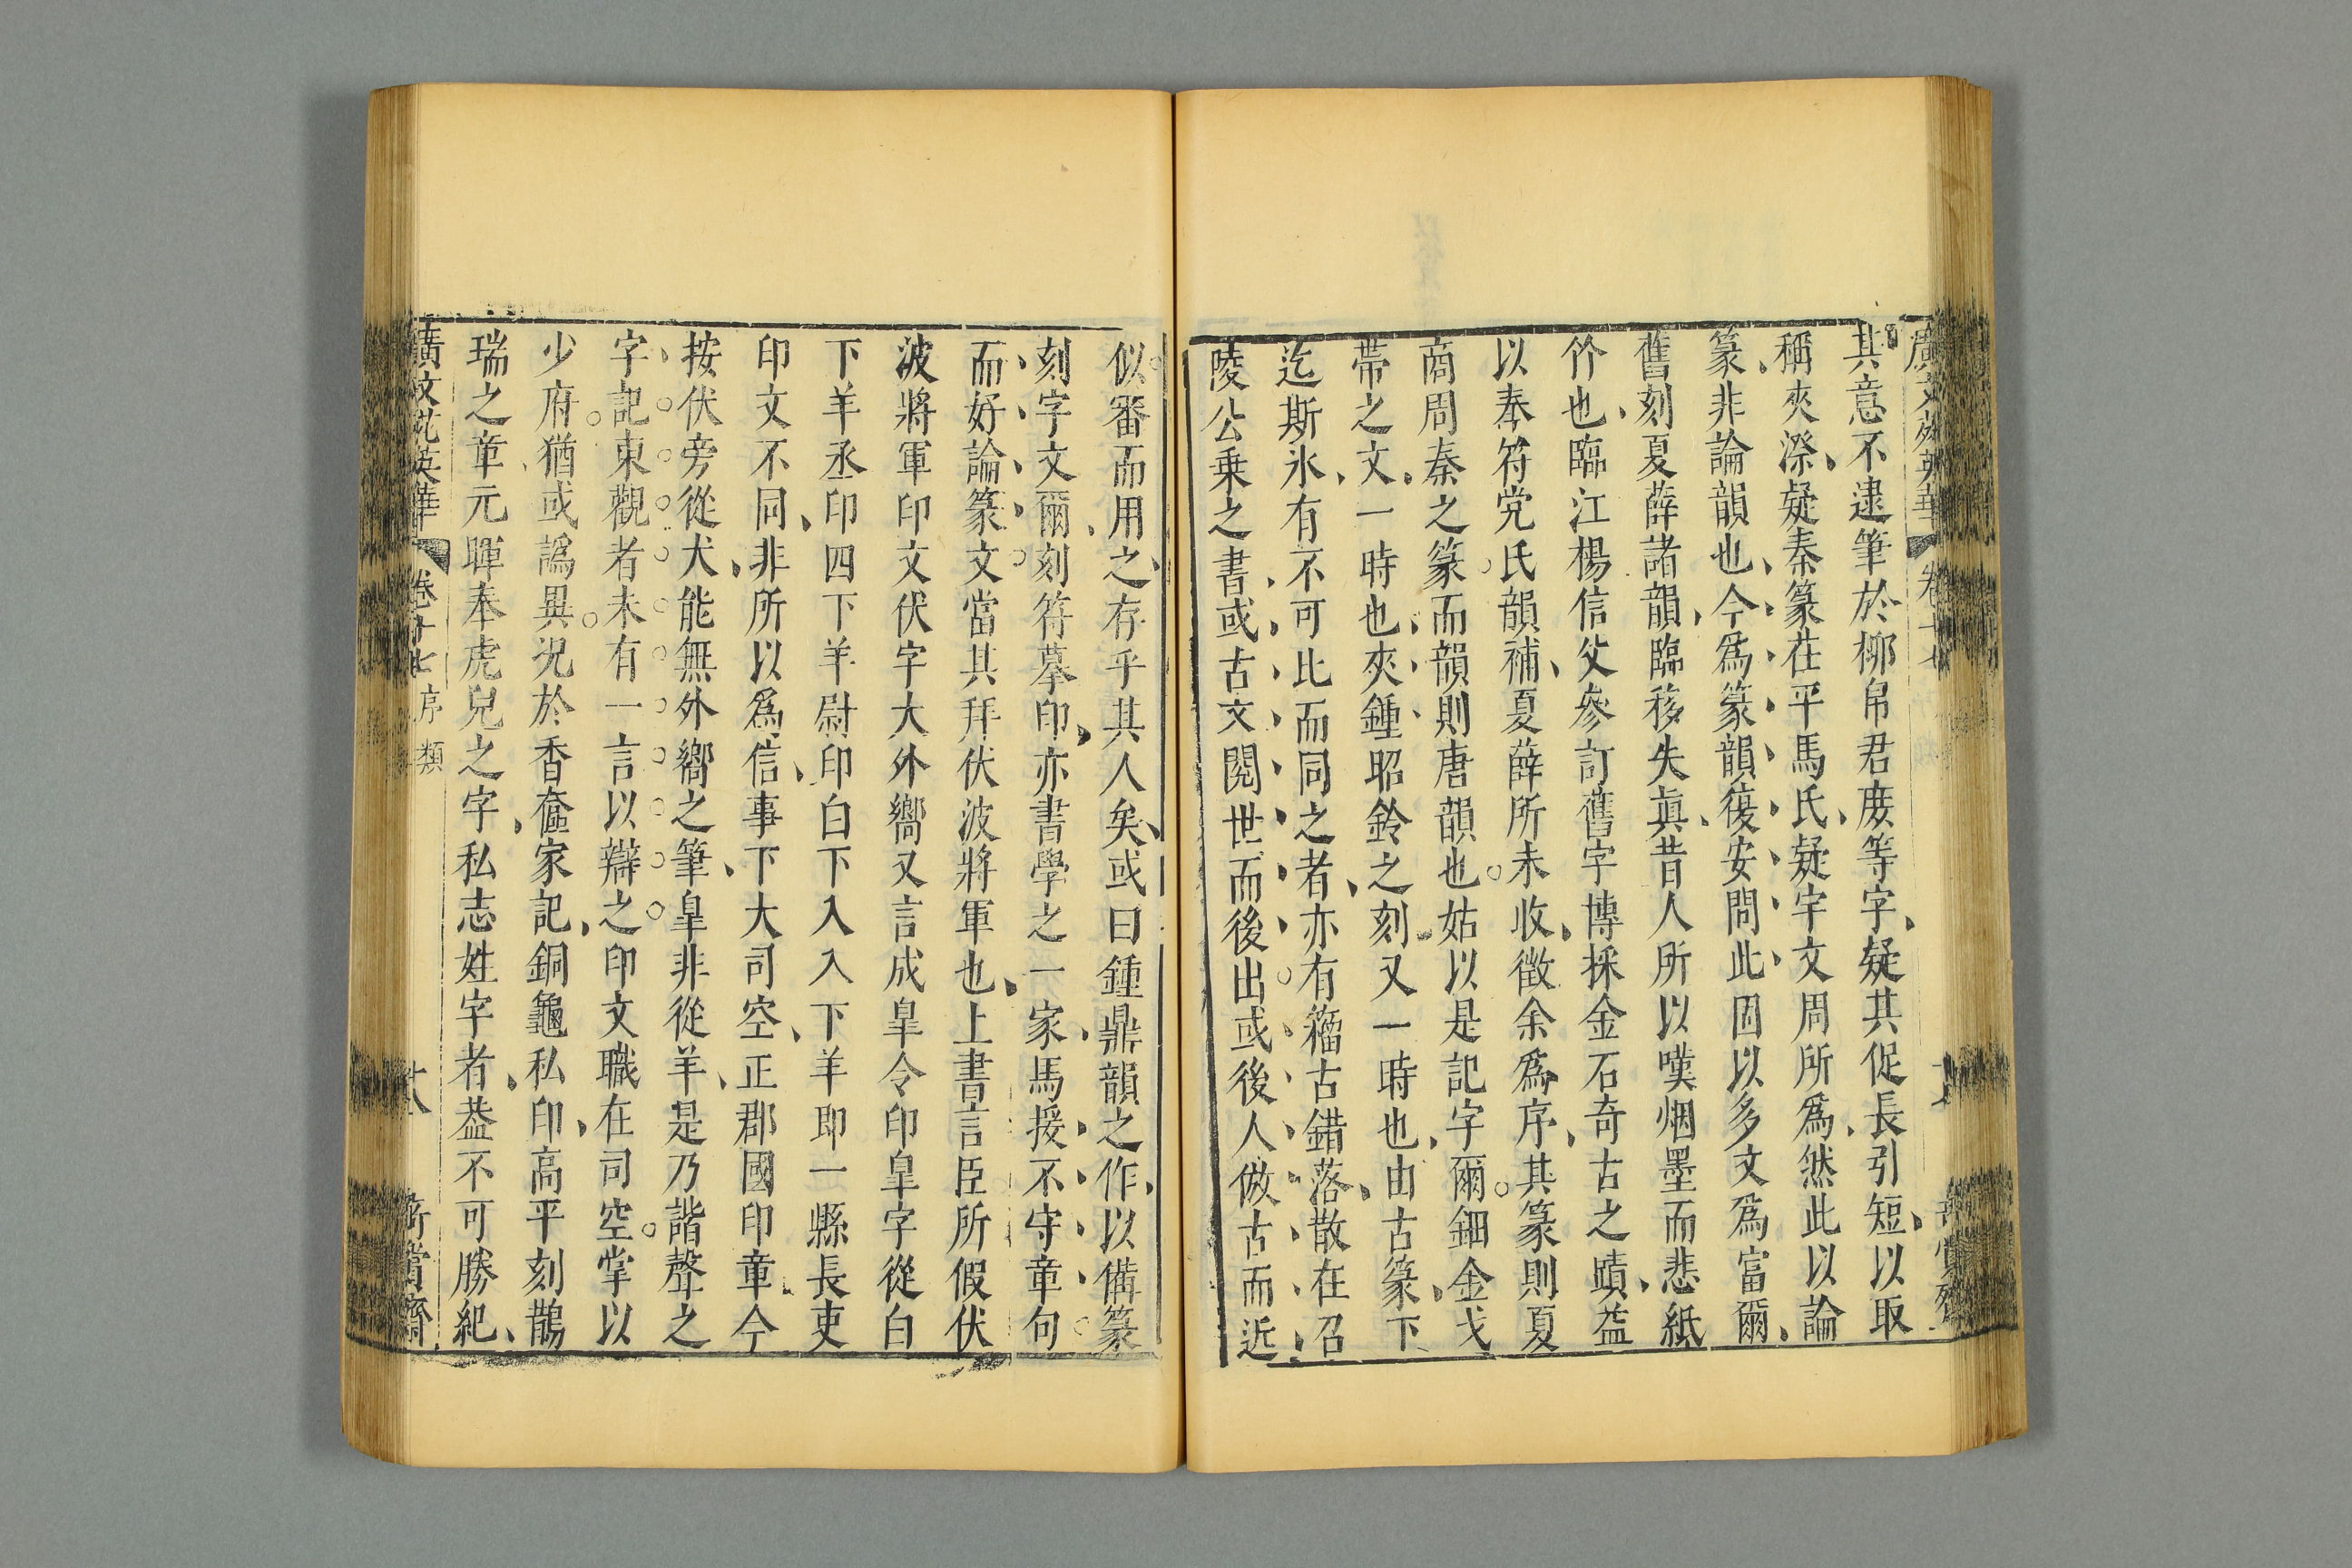 廣文苑英華 卷十七
其意不逮筆於柳帛君庋等字疑其促長引短以取
稱夾漈疑秦篆在平馬氏疑宇文周所爲然此以論
篆非論韻也今爲篆韻復安問此固以多文爲富爾
舊刻夏薛諸韻臨移失眞昔人所以嘆烟墨而悲紙
竹也臨江楊信父參訂舊字博採金石奇古之蹟益
以奉符党氏韻補夏薛所未收徵余爲序其篆則夏
商周秦之篆而韻則唐韻也姑以是記字爾鈿金戈
帶之文一時也夾鍾昭鈴之刻又一時也由古篆下
迄斯冰有不可比而同之者亦有籀古錯落散在召
陵公乗之書或古文閱世而後出或後人倣古而近
似審而用之存乎其人矣或曰鍾鼎韻之作以備篆
刻字文爾刻符摹印亦書學之一家馬援不守章句
而好論篆文當其拜伏波將軍也上書言臣所假伏
波將軍印文伏字犬外嚮又言成皐令印皐字從白
下羊丞印四下羊尉印白下入入下羊即一縣長吏
印文不同非所以爲信事下大司空正郡國印章今
按伏旁從犬能無外嚮之筆皐非從羊是乃諧聲之
字記東觀者未有一言以辯之印文職在司空掌以
少府猶或譌異况於香奩家記銅龜私印高平刻鵲
瑞之章元暉奉虎兒之字私志姓字者葢不可勝紀
廣文苑英華 卷十七 序類 十八 奇賞齋